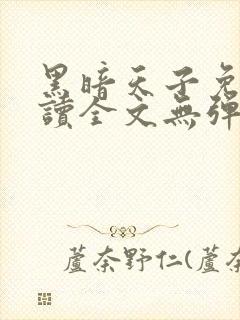 黑暗天子免
讀全文無彈
蘆奈野仁(蘆奈